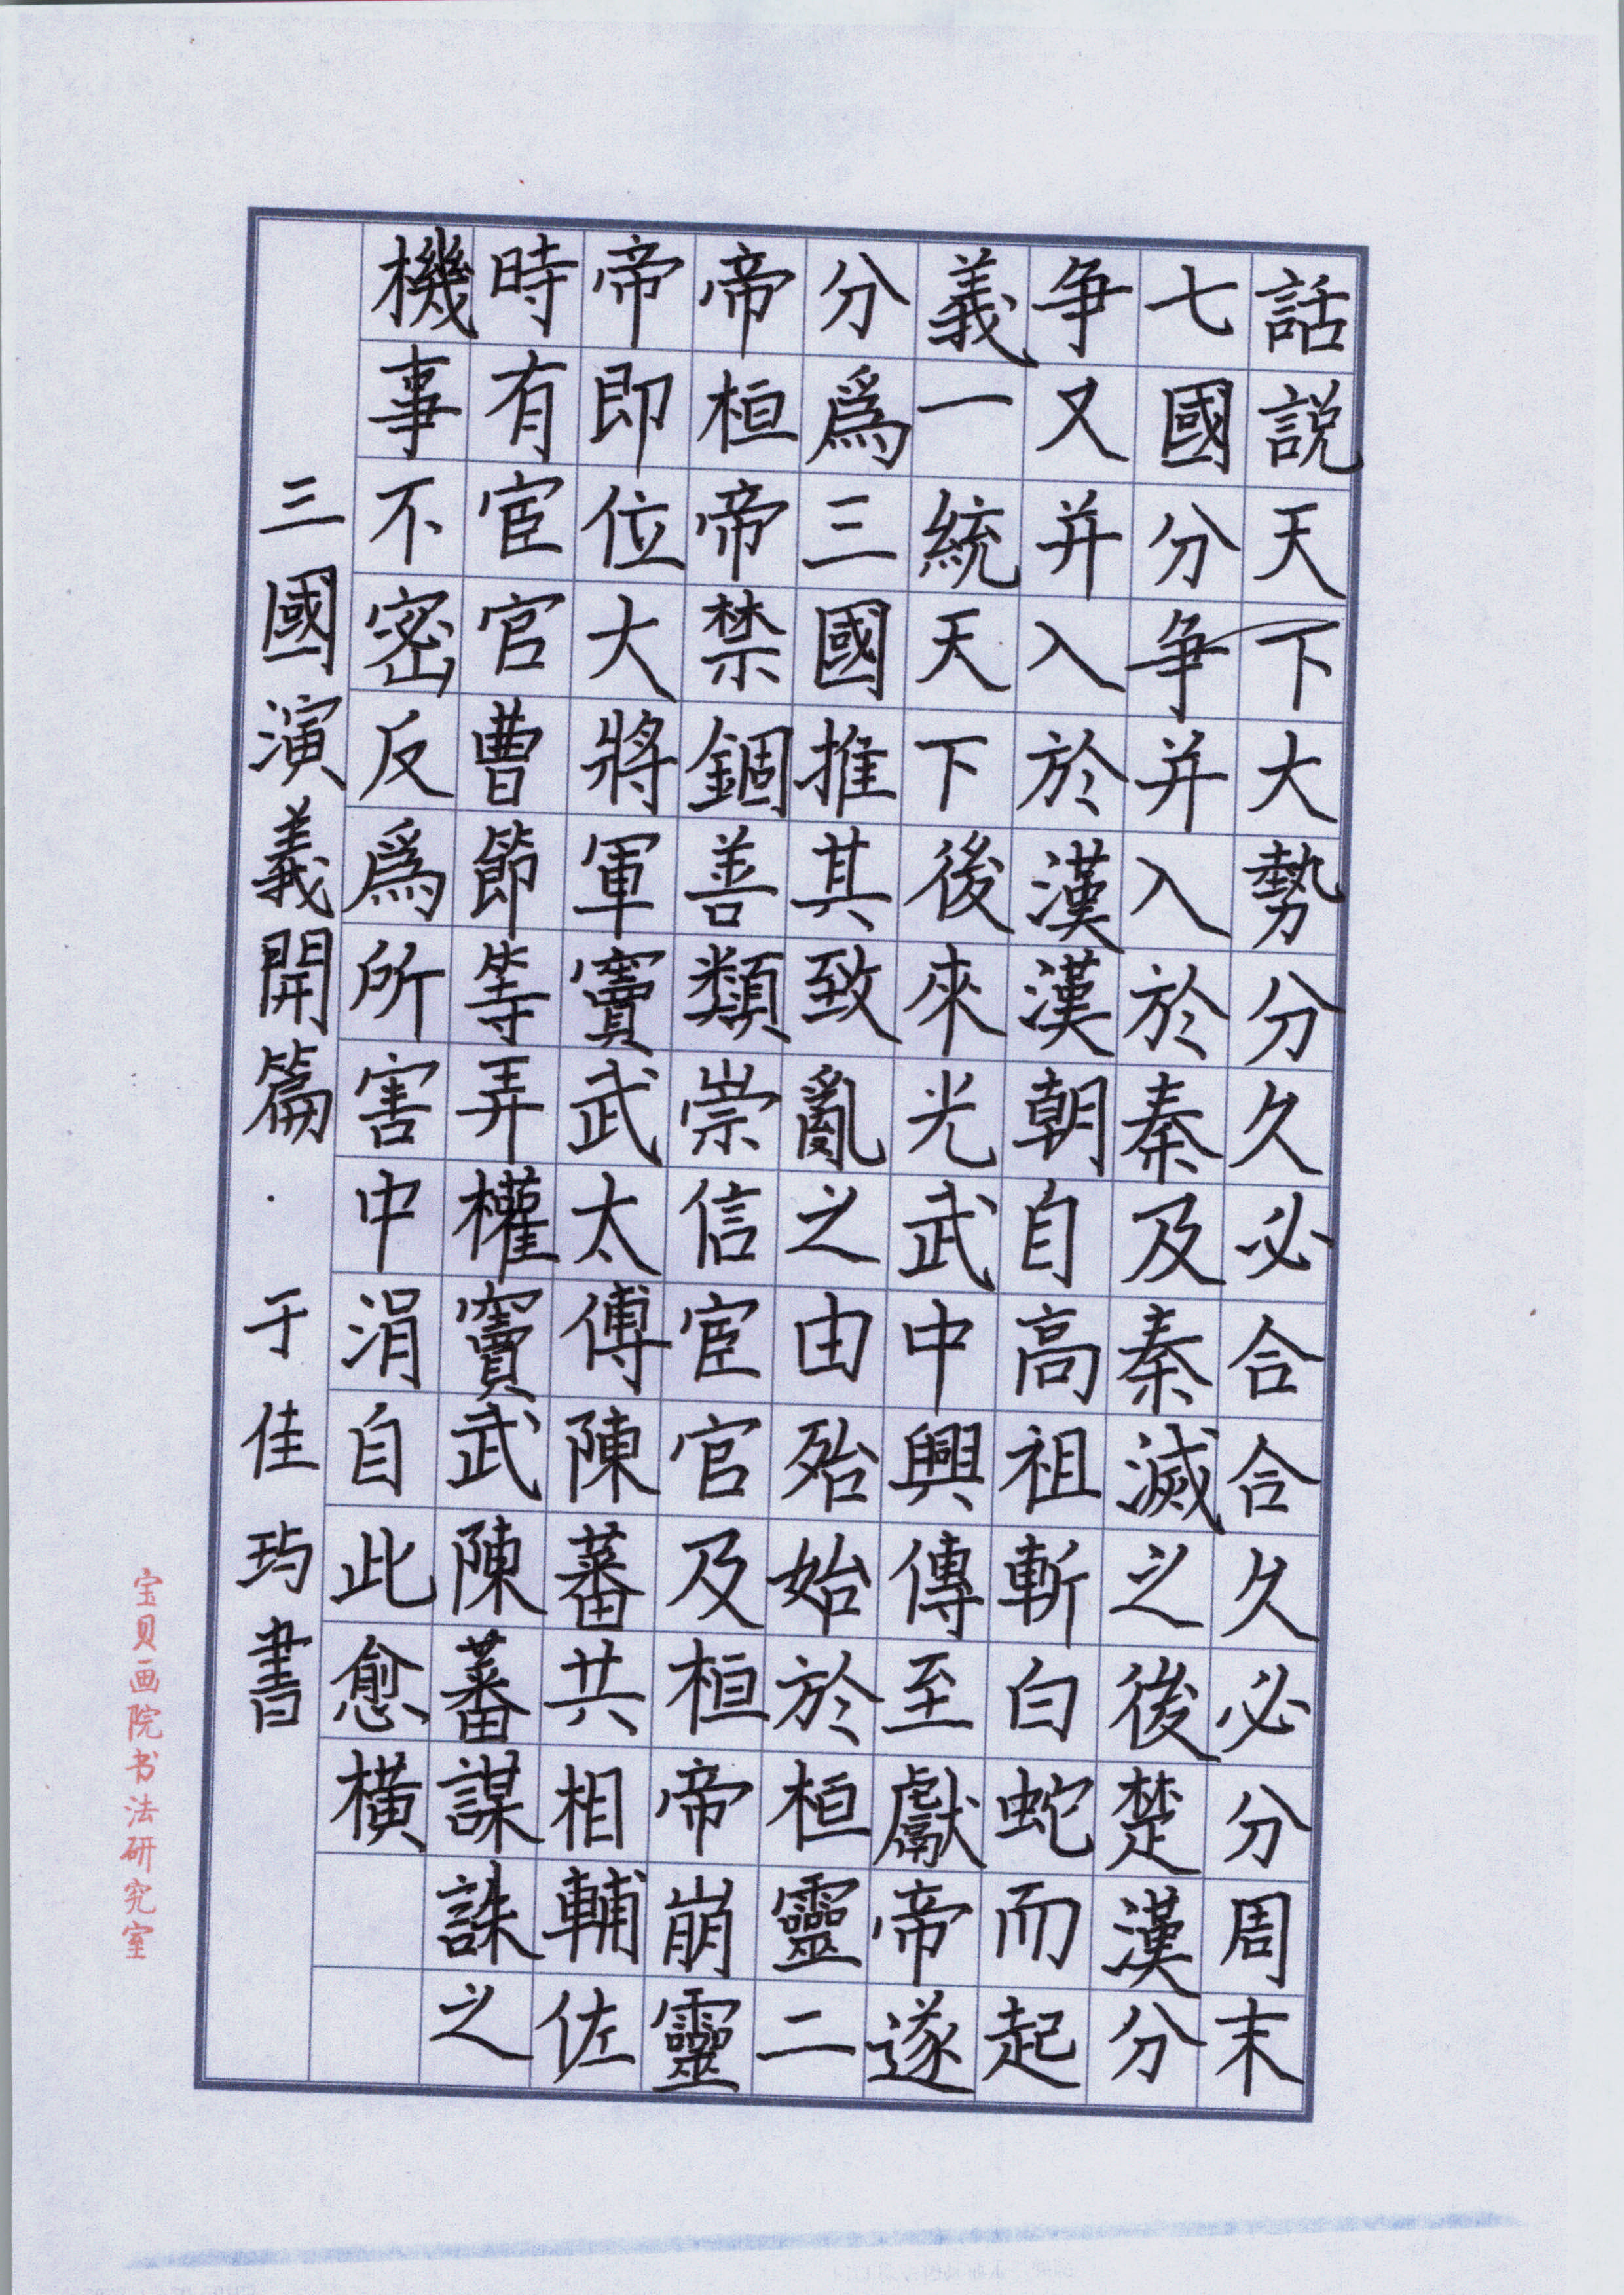 話説天下大勢分久必合合久必分周末
七國分争并入於秦及秦滅之後楚漢分
争又并入於漢漢朝自高祖斬白蛇而起
義一統天下後來光武中興傳至獻帝遂
分爲三國推其致亂之由殆始於桓靈二
帝桓帝禁錮善類崇信宦官及桓帝崩靈
帝即位大將軍竇武太傅陳蕃共相輔佐
時有宦官曹節等弄權竇武陳蕃謀誅之
機事不密反爲所害中涓自此愈橫
三國演義開篇·于佳玙書
宝贝画院书法研究室